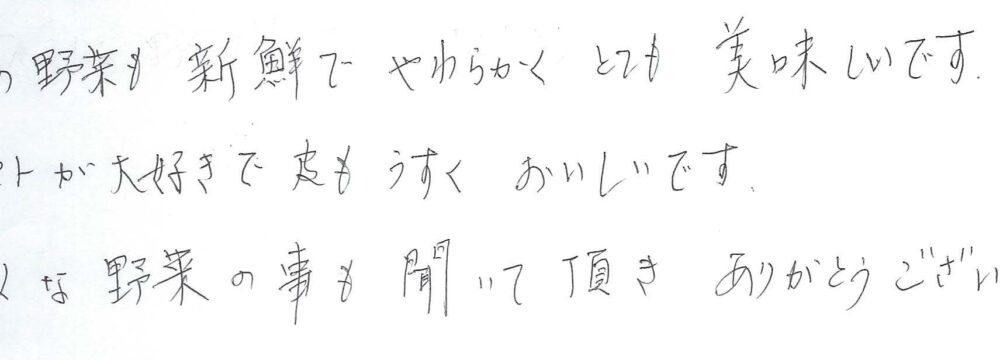 の野菜も 新鮮で やわらかく とても 美味しいです.
トが大好きで 皮も うすく おいしいです.
な 野菜の事も 聞いて 頂き ありがとうござい